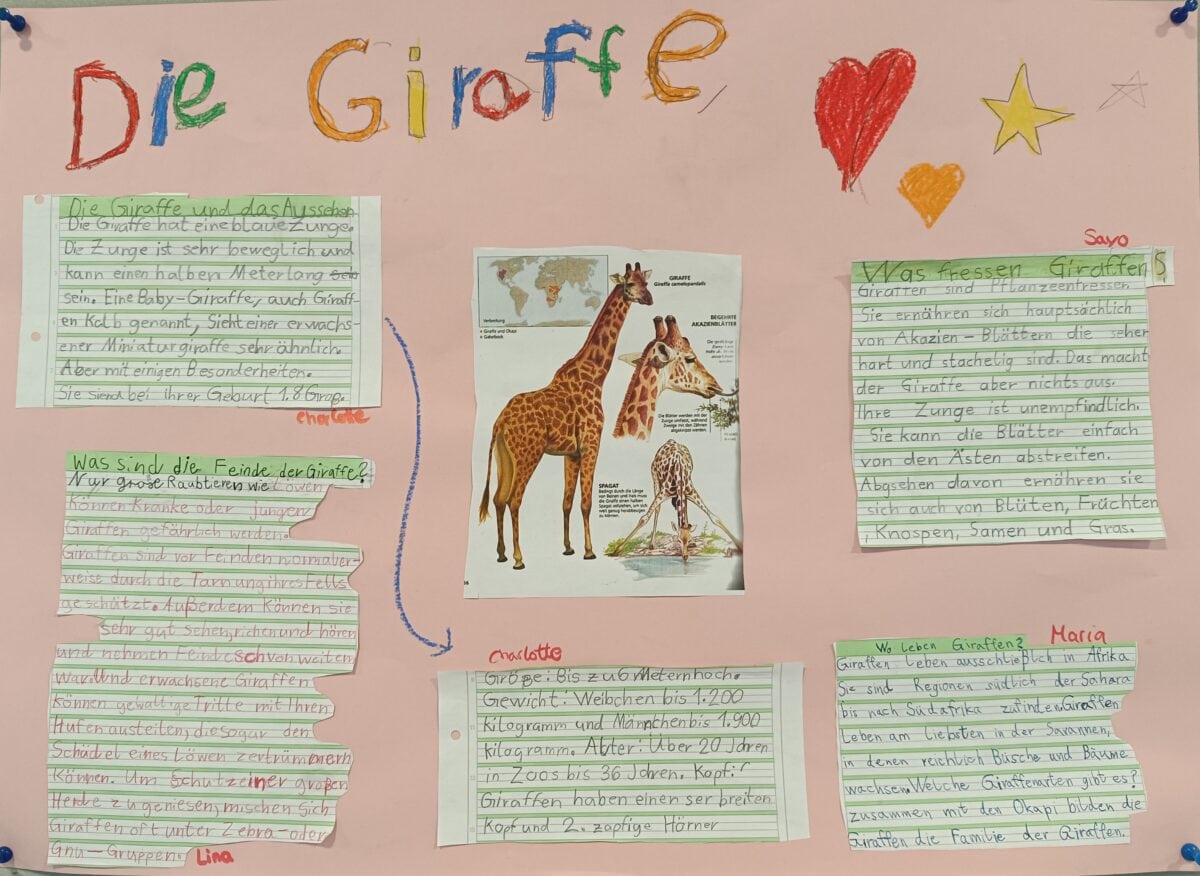 Die Giraffe
Die Giraffe und das Aussehen
Die Giraffe hat eine blaue Zunge.
Die Zunge ist sehr beweglich und
kann einen halben Meter lang
sein. Eine Baby-Giraffe, auch Giraff-
en Kalb genannt, Sieht einer erwachs-
ener Miniaturgiraffe sehr ähnlich.
Aber mit einigen Besonderheiten.
Sie siend bei ihrer Geburt 1.8 Grap.
Charlotte
Was sind die Feinde der Giraffe?
Nur große Raubtieren wie Löwen
Können Kranke oder jungen
Giraffen gefährlich werden.
Giraffen sind vor Feinden normaler-
weise durch die Tarnung ihres Fells
geschätzt. Außerdem können sie
sehr gut sehen, richen und hören
und nehmen Feinde schon weitem
war. Und erwachsene Giraffen
können gewaltige Tritte mit Ihren
Hufen austeilen, die sogar den
Schädel eines Löwen zertrümmern
Können. Um Schutz einer großen
Herde zu geniesen, mischen Sich
Giraffen oft unter Zebra- oder
Gnu-Gruppen.
Lina
Verbreitung
Giraffe und Okapi
Gabelbock
GIRAFFE
Giraffa camelopardalis
BEGEHRTE
AKAZIENBLÄTTER
Die Blätter werden mit der
Zunge umfasst, während
Zweige mit den Zähnen
abgekniffen werden.
SPAGAT
Bedingt durch die Länge
von Beinen und Hals muss
die Giraffe einen halben
Spagat vollziehen, um sich
weit genug herabbeugen
zu können.
Charlotte
Größe: Bis zu 6 Meternhoch.
Gewicht: Weibchen bis 1.200
kilogramm und Männchen bis 1.900
kilogramm. Alter: Über 20 Jahren
in Zoos bis 36 Joren. Kopf:
Giraffen haben einen ser breiten
Kopf und 2. zapfige Hörner
Sayo
Was fressen Giraffen?
Giraffen sind Pflanzeenfresser
Sie ernähren sich hauptsächlich
von Akazien-Blättern die seher
hart und stachelig sind. Das macht
der Giraffe aber nichts aus.
Ihre Zunge ist unempfindlich.
Sie kann die Blätter einfach
von den Ästen abstreifen.
Abgsehen davon ernähren sie
sich auch von Blüten, Früchten
, Knospen, Samen und Gras.
Maria
Wo leben Giraffen?
Giraffen Leben ausschließlich in Afrika
Sie sind Regionen südlich der Sahara
bis nach Südafrika zufinden. Giraffen
Leben am liebsten in der Savannen,
in denen reichlich Büsche und Bäume
wachsen. Welche Giraffenarten gibt es?
zusammen mit den Okapi bilden die
Giraffen die Familie der Giraffen.